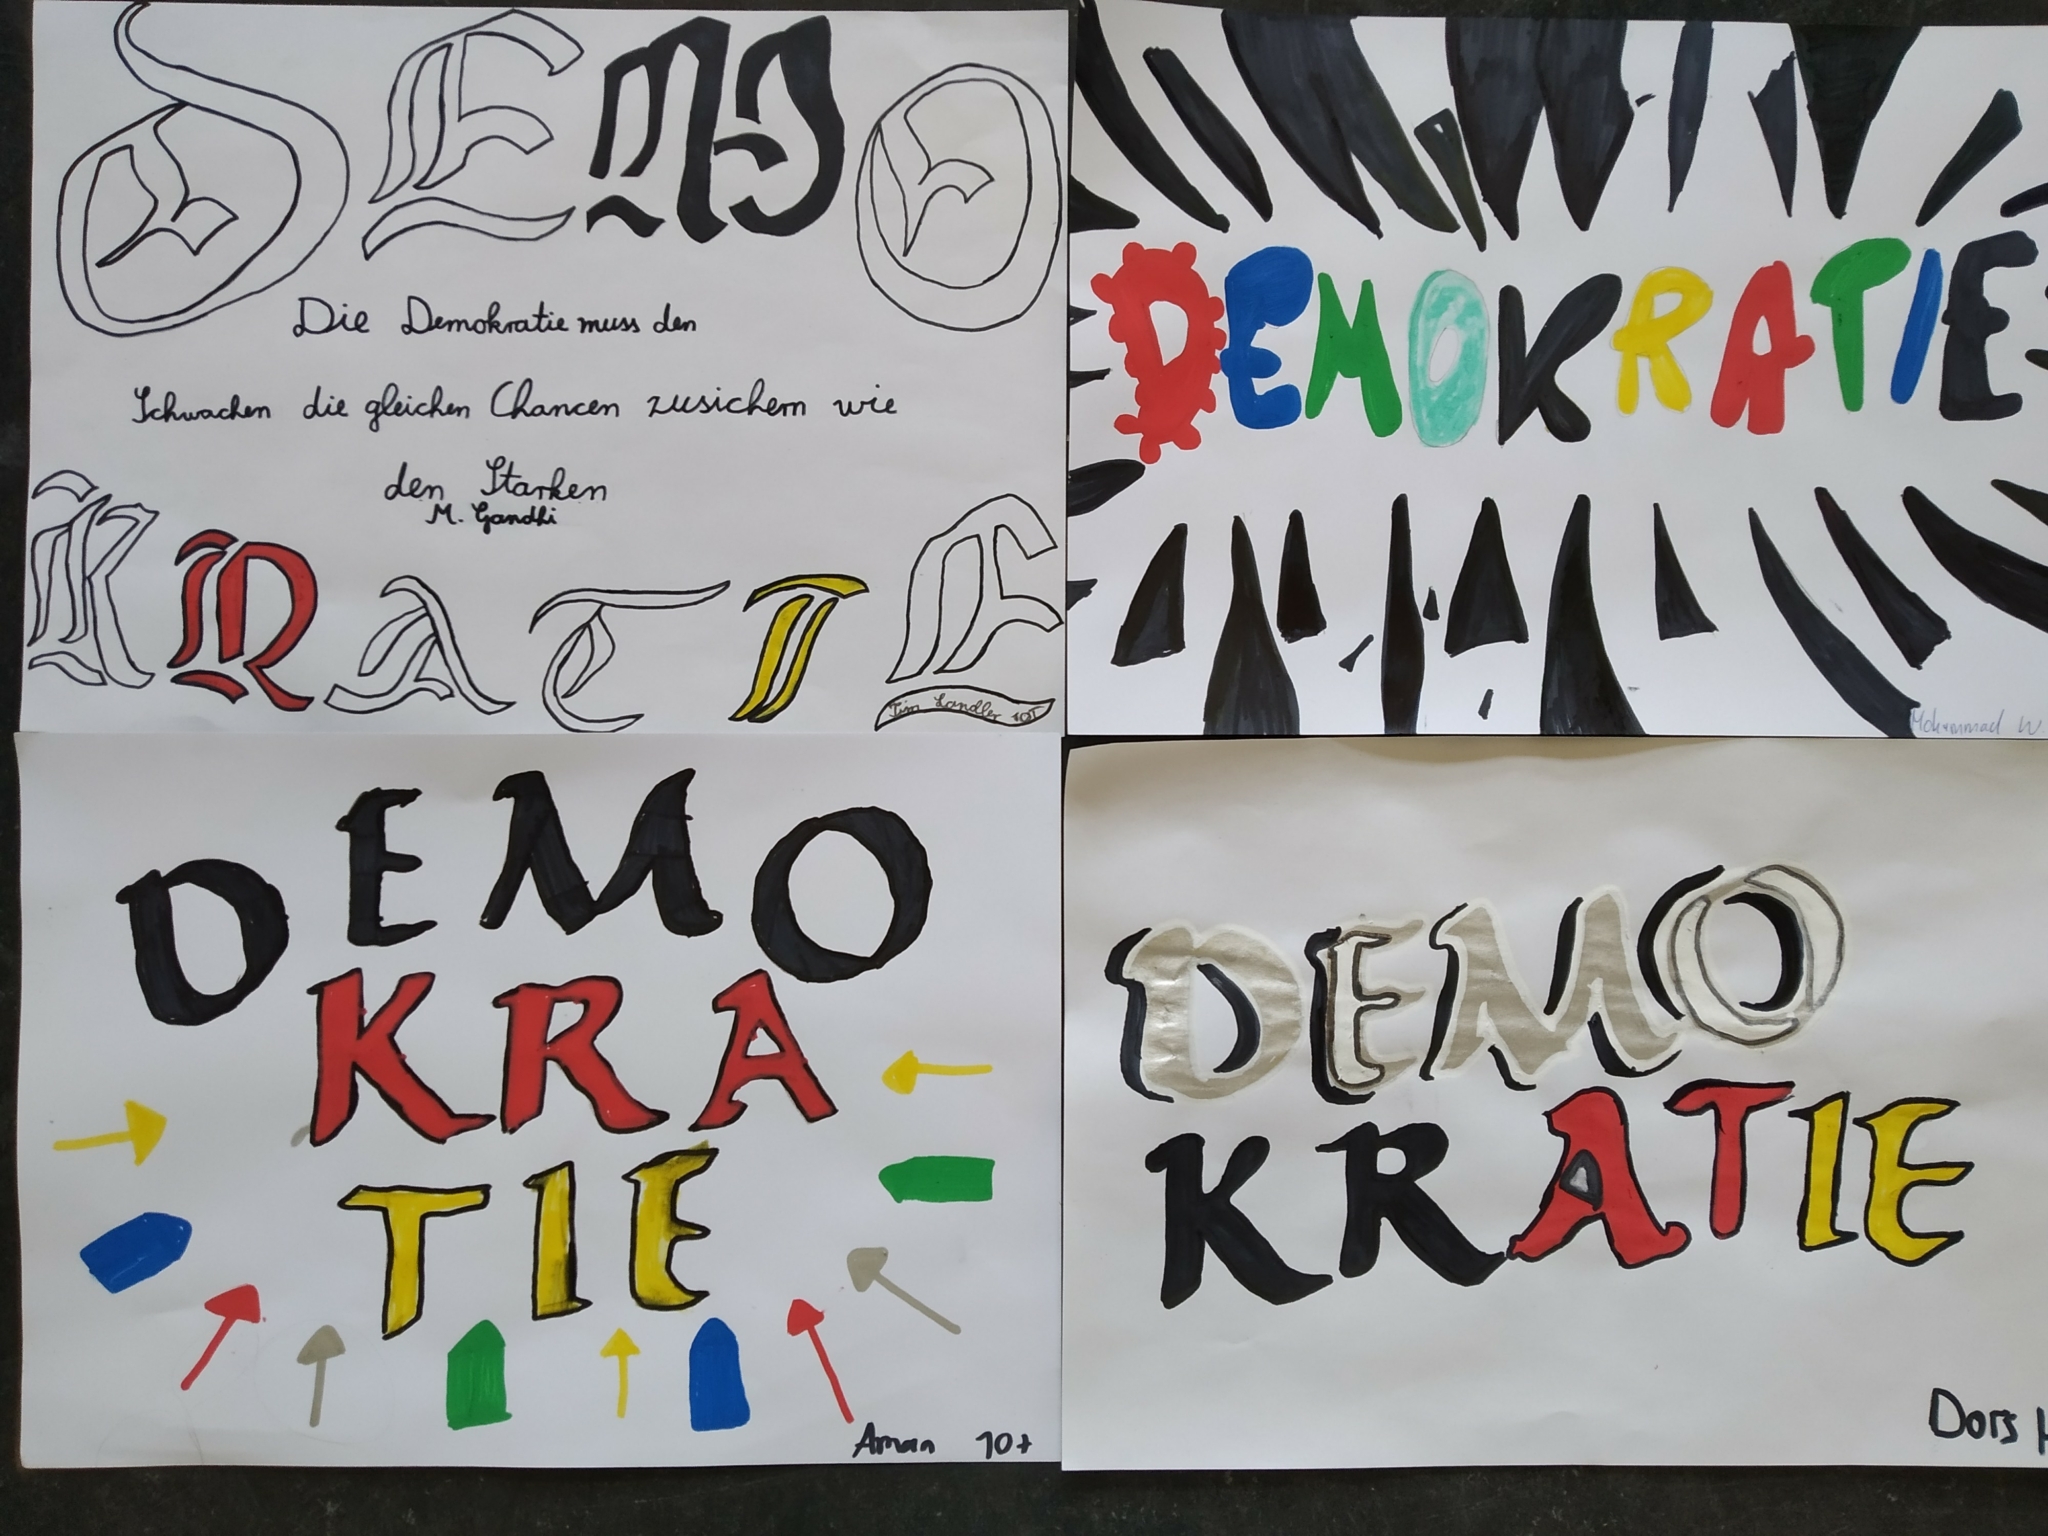 DEMO
Die Demokratie muss den
Schwachen die gleichen Chancen zusichern wie
den Starken
M. Gandhi
KRATIE
Tim Landler 10T
DEMOKRATIE
Mohammad W
DEMO
KRA
TIE
Aman 10+
DEMO
KRATIE